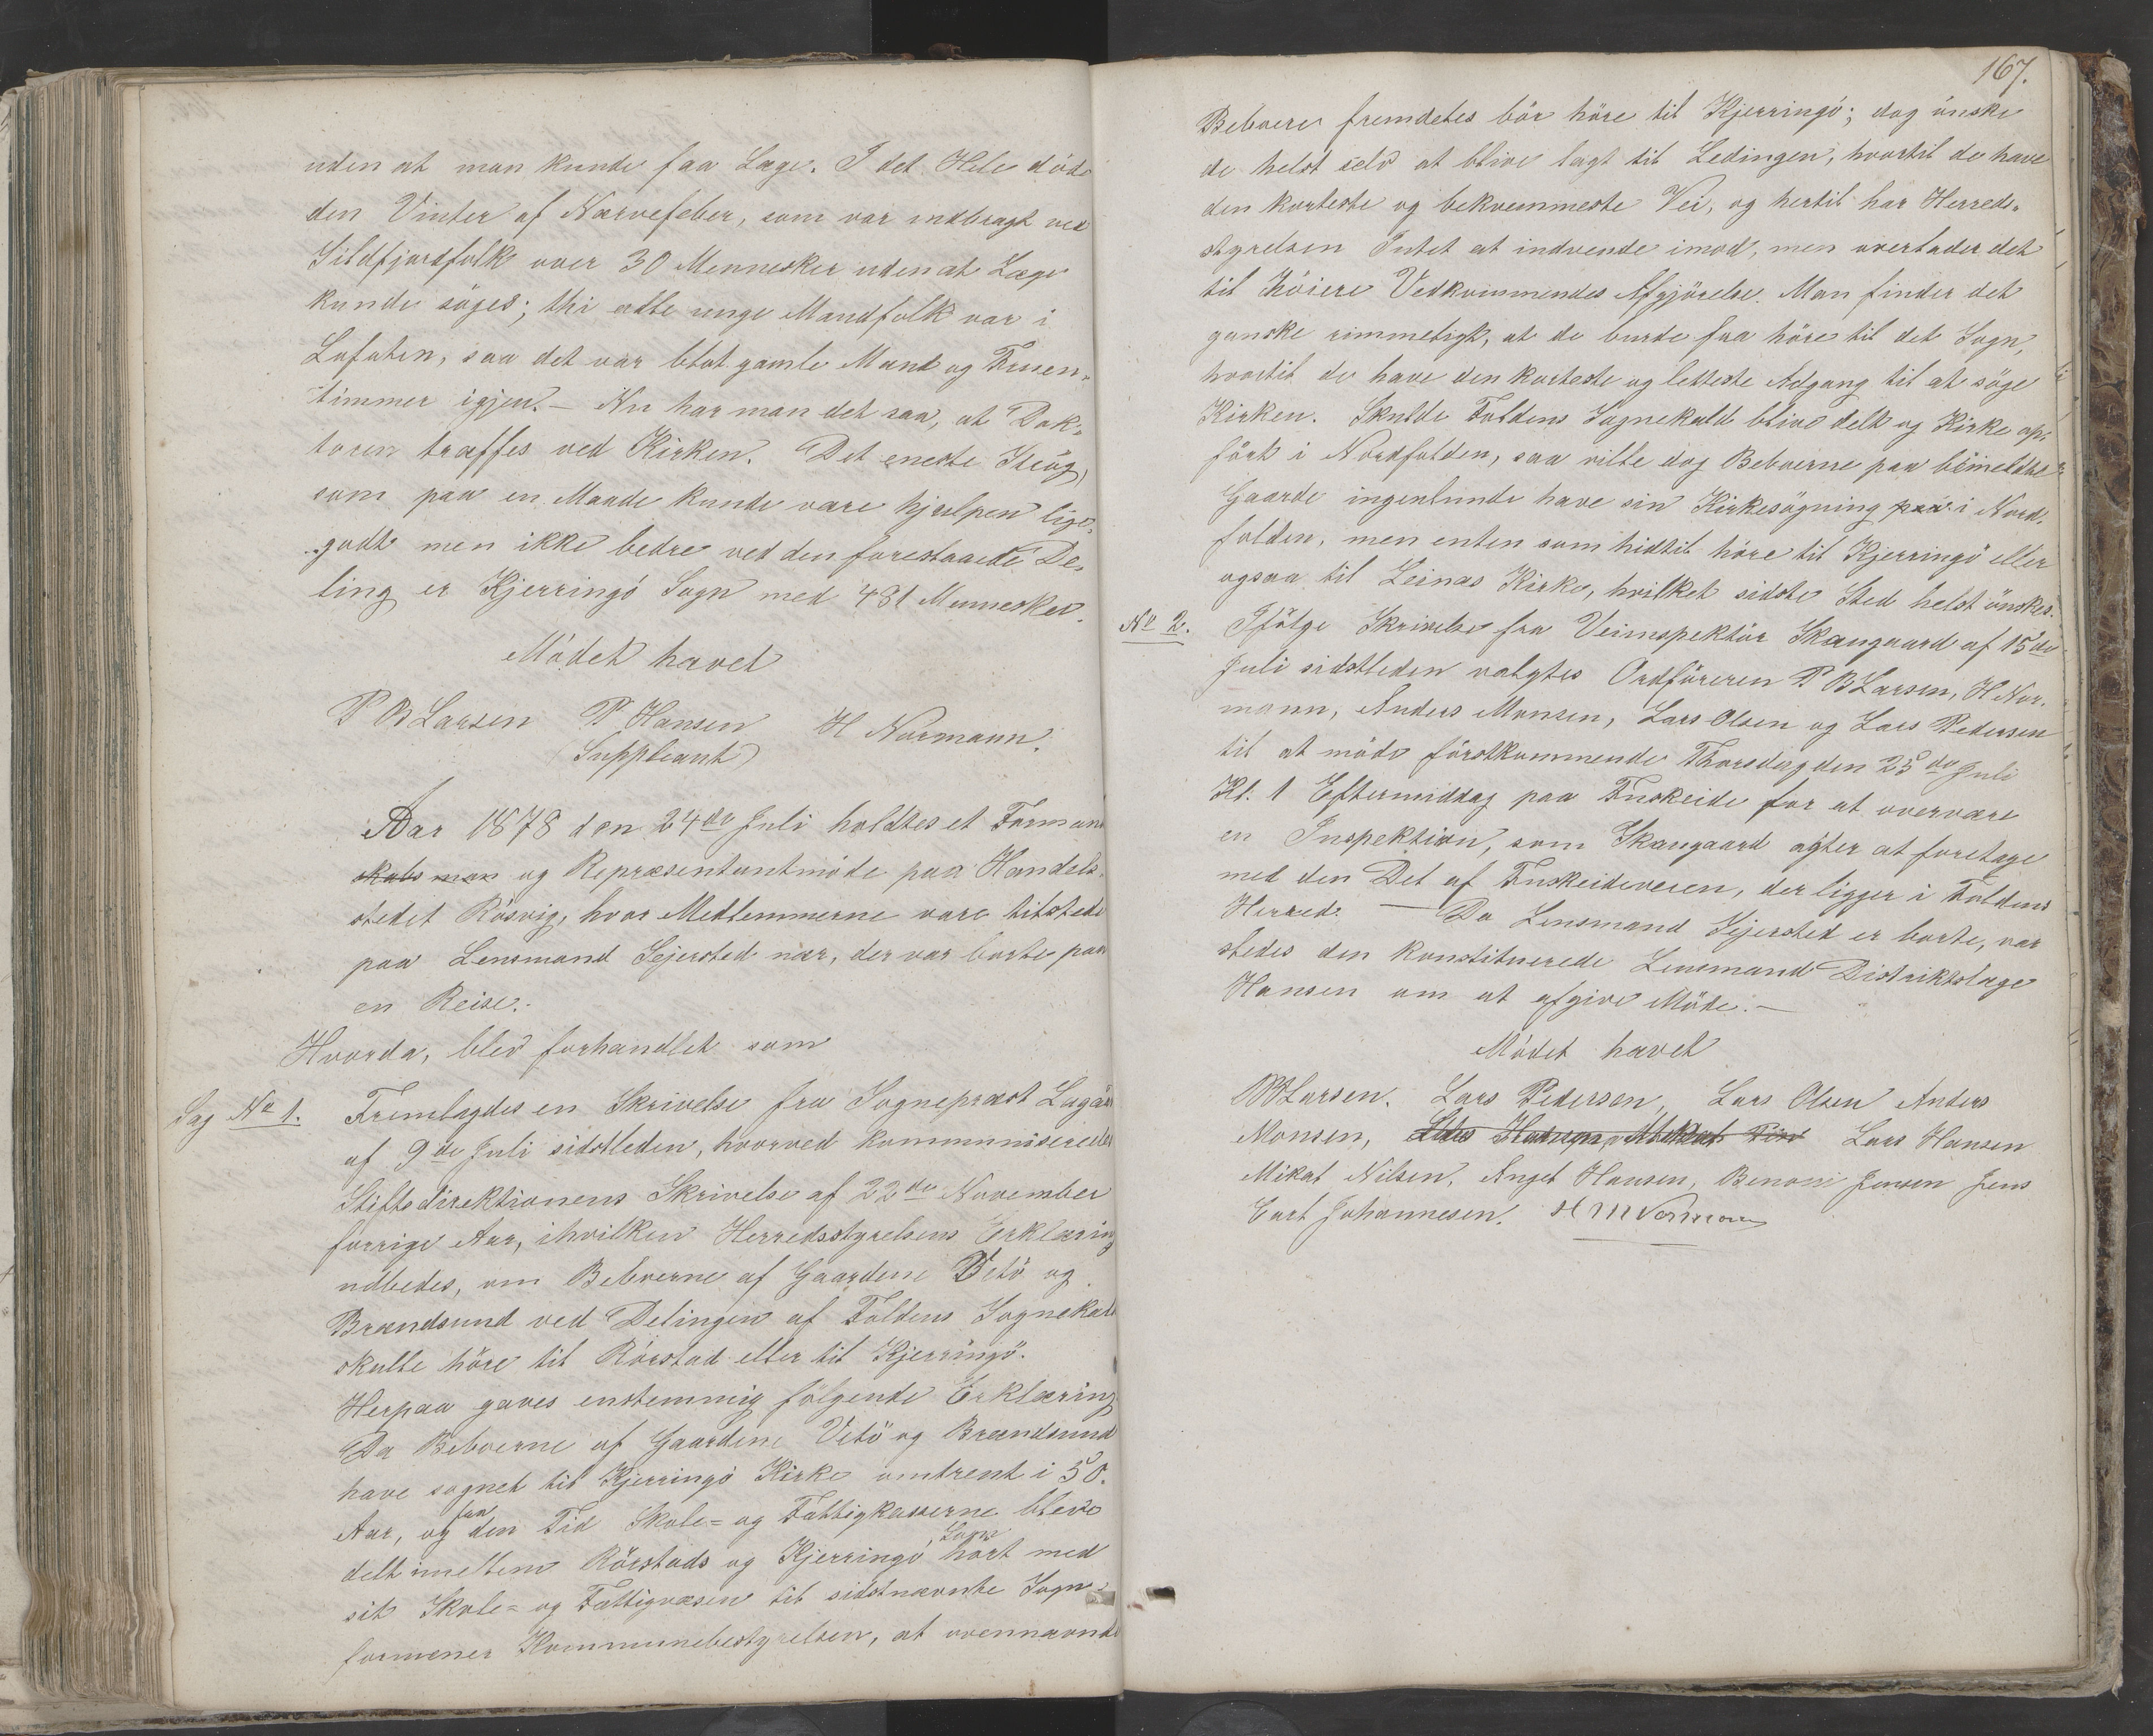 uden at man kunde faa Læge. I det Hele döde
den Vinter af Nervefeber, som var indbragt ved
Sildfjordfolk over 30 Mennesker uden at Læge
kunde söges; thi alle unge Mandfolk var i
Lofoten, saa det var blot gamle Mænd og Fruen-
timmer igjen. – Nu har man det saa, at Dok-
toren træffes ved Kirken. Det eneste Strög,
som paa en Maade kunde være hjulpen lige-
godt men ikke bedre ved den forestaaede De-
ling er Kjerringö Sogn med 481 Mennesker.
Mödet hævet
P B Larsen P. Hansen H Normann.
(Suppleant)
Aar 1878 den 24de Juli holdtes et Formand
skabs man og Repræsentantmöde paa Handels-
stedet Rösvig, hvor Medlemmerne vare tilstede
paa Lensmand Sejersted nær, der var borte paa
en Reise.
Hvorda, blev forhandlet som
Sag No 1. Fremlagdes en Skrivelse fra Sogneprest
af 9de Juli sidstleden, hvorved kommuniseredes
Stiftsdirektionens Skrivelse af 22de November
forrige Aar, ihvilken Herredsstyrelsens Erklæring
udbedes, om Beboerne af Gaardene Vetö og
Brændsund ved Delingen af Foldens Sognekald
skulle höre til Rörstad eller til Kjerringö.
Herpaa gaves enstemmig fölgende Erklæring
Da Beboerne af Gaardene Vetö og Brændsund
have sognet til Kjerringö Kirke omtrent i 50.
Aar, og fra den Tid Skole- og Fattigkasserne bleve
delt imellem Rörstads og Kjerringö Sogn hört med
sit Skole- og Fattigvæsen til sidstnævnte Sogn,
formener Kommunebestyrelsen, at ovennævnde
167.
Beboere fremdeles bör höre til Kjerringö; dog önske
de helst selv at blive lagt til Ledingen, hvortil de have
den korteste og bekvemmeste Vei, og hertil har Herreds-
styrelsen Intet at indvende imod, men overlader det
til Höiere Vedkommendes Afgjörelse. Man finder det
ganske rimmeligt, at de burde faa höre til det Sogn,
hvortil de have den korteste og letteste Adgang til at söge
Kirken. Skulde Foldens Sognekald blive delt og Kirke op-
fört i Nordfolden, saa ville dog Beboerne paa bemeldte
Gaarde ingenlunde have sin Kirkesögning paa i Nord-
folden, men enten som hidtil höre til Kjerringö eller
ogsaa til Leinæs Kirke, hvilket sidste Sted helst önskes.
No 2. Ifölge Skrivelse fra Veiinspektör Skougaard af 15de
Juli sidstleden valgtes Ordföreren P B Larsen, H Nor-
mann, Anders Monsen, Lars Olsen og Lars Pedersen
til at möde förstkommende Thorsdag den 25de Juli
Kl. 1 Eftermiddag paa Fuskeide for at overvære
en Inspektion, som Skougaard agter at foretage
med den Del af Fuskeideveien, der ligger i Foldens
Herred. — Da Lensmand Sejersted er borte, var
stedes den konstituerede Lensmand Distriktslæge
Hansen om at afgive Möde. –
Mödet hævet
PB Larsen. Lars Pedersen, Lars Olsen Anders
Monsen, Lars Hansen
Mikal Nilsen, Angel Hansen, Benoni Jensen Jens
Carl Johannesen. H M Normann